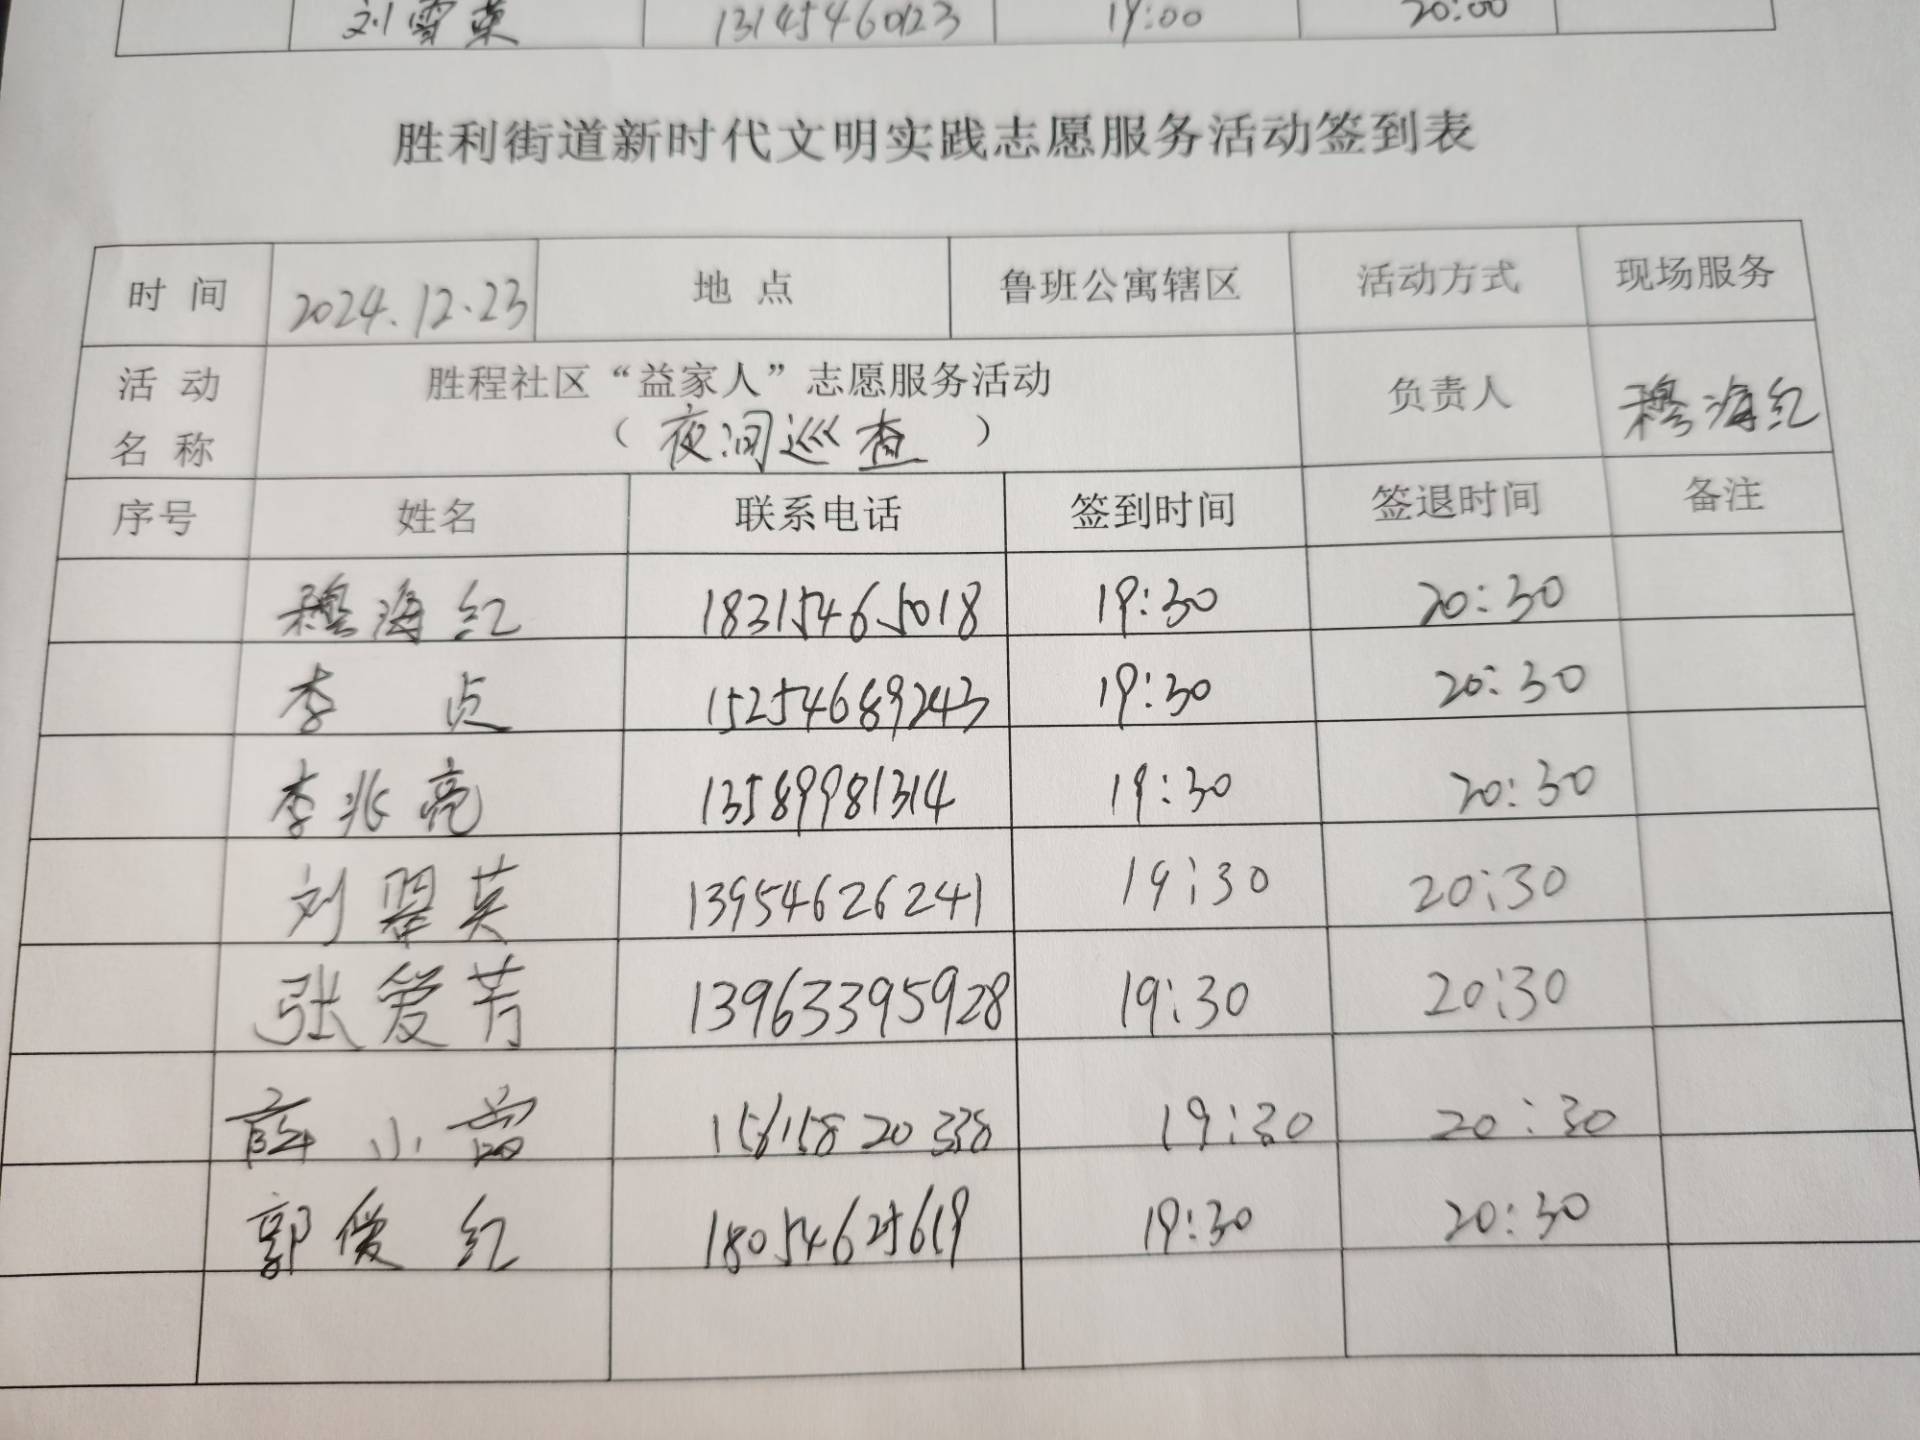 刘雪英 13145460123 19:00 20:00
胜利街道新时代文明实践志愿服务活动签到表
时 间 2024.12.23 地 点 鲁班公寓辖区 活动方式 现场服务
活 动 名 称 胜程社区“益家人”志愿服务活动 负责人 穆海红
（夜间巡查）
序号 姓名 联系电话 签到时间 签退时间 备注
穆海红 18315465018 19:30 20:30
李 贞 15254689243 19:30 20:30
李兆亮 13589981314 19:30 20:30
刘翠英 13954626241 19:30 20:30
张爱芳 13963395928 19:30 20:30
薛小 15615820338 19:30 20:30
郭俊红 18054625619 19:30 20:30